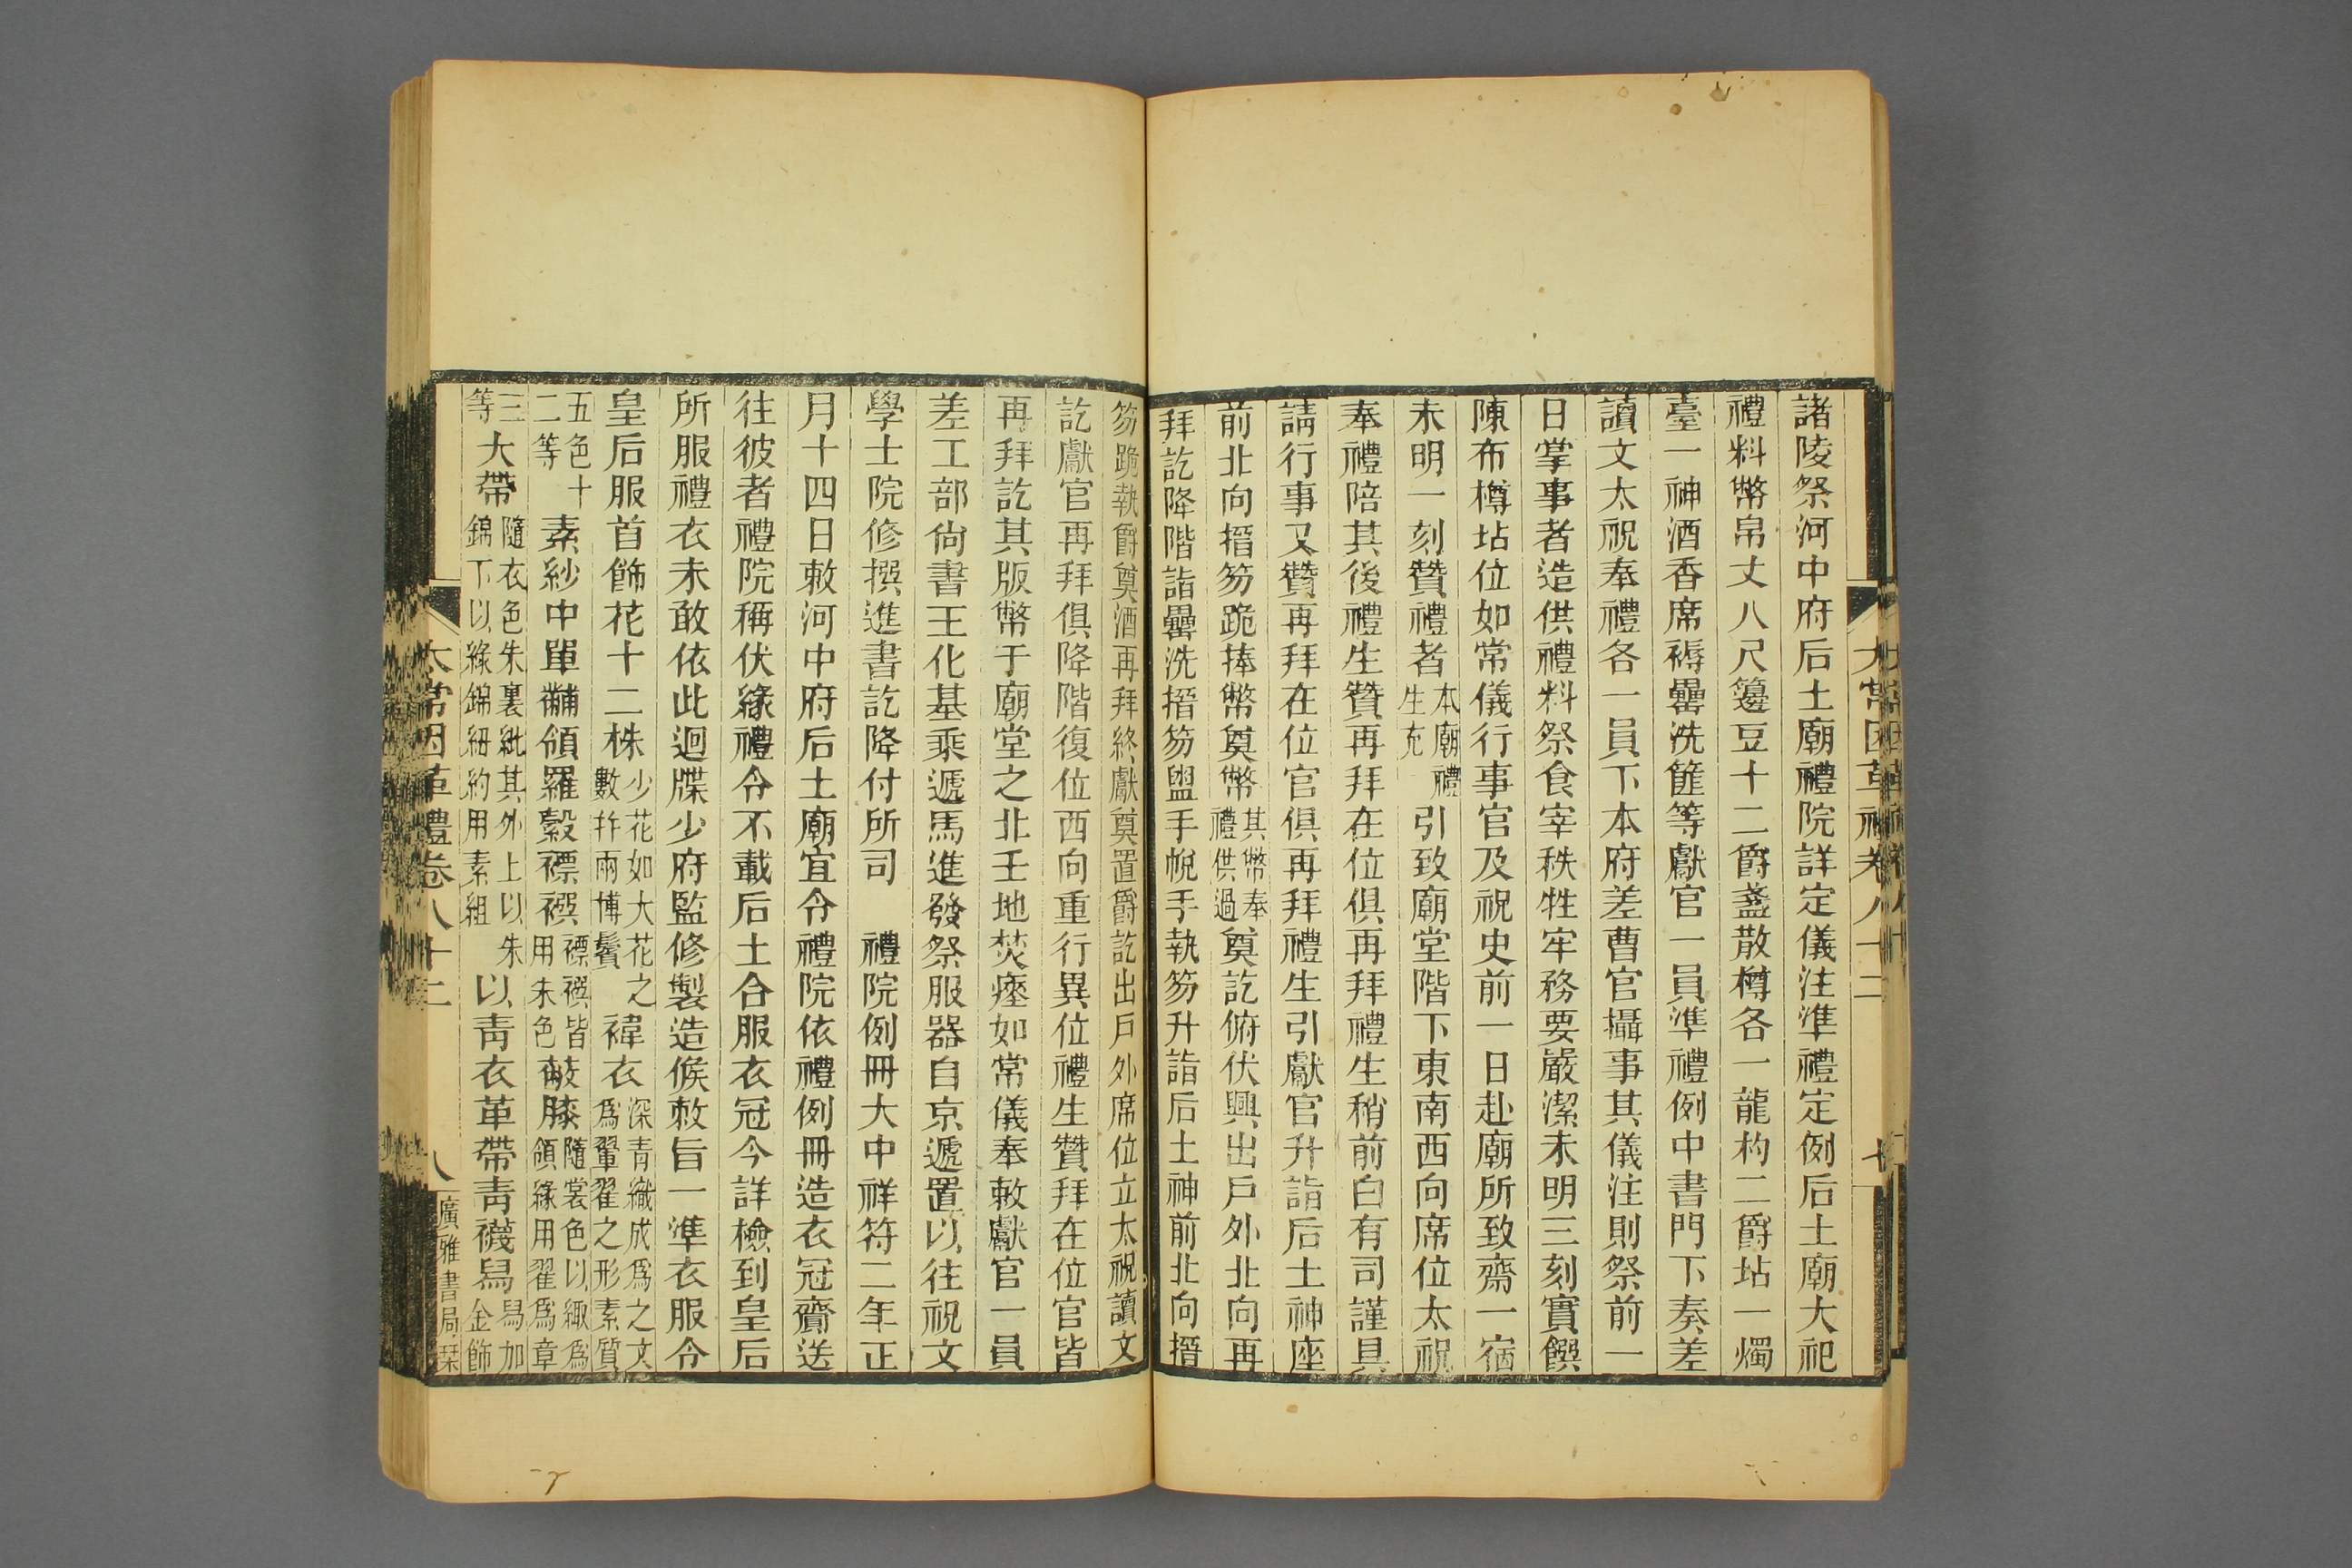 大常因革禮卷八十二
七
諸陵祭河中府后土廟禮院詳定儀注準禮定例后土廟大祀
禮料幣帛丈八尺籩豆十二爵盞散樽各一龍杓二爵坫一燭
臺一神酒香席褥罍洗篚等獻官一員準禮例中書門下奏差
讀文太祝奉禮各一員下本府差曹官攝事其儀注則祭前一
日掌事者造供禮料祭食宰秩牲牢務要嚴潔未明三刻實饌
陳布樽坫位如常儀行事官及祝史前一日赴廟所致齋一宿
未明一刻贊禮者本廟禮生充引致廟堂階下東南西向席位太祝
奉禮陪其後禮生贊再拜在位俱再拜禮生稍前白有司謹具
請行事又贊再拜在位官俱再拜禮生引獻官升詣后土神座
前北向搢笏跪捧幣奠幣其幣奉禮供過奠訖俯伏興出戶外北向再
拜訖降階詣罍洗搢笏盥手帨手執笏升詣后土神前北向搢
笏跪執爵奠酒再拜終獻奠置爵訖出戶外席位立太祝讀文
訖獻官再拜俱降階復位西向重行異位禮生贊拜在位官皆
再拜訖其版幣于廟堂之北壬地焚瘞如常儀奉敕獻官一員
差工部尙書王化基乘遞馬進發祭服器自京遞置以往祝文
學士院修撰進書訖降付所司　禮院例冊大中祥符二年正
月十四日敕河中府后土廟宜令禮院依禮例冊造衣冠齎送
往彼者禮院稱伏緣禮令不載后土合服衣冠今詳檢到皇后
所服禮衣未敢依此迴牒少府監修製造候敕旨一準衣服令
皇后服首飾花十二株少花如大花之數幷兩博鬢褘衣深青織成爲之文爲翬翟之形素質
五色十二等素紗中單黼領羅縠褾襈褾襈皆用朱色蔽膝隨裳色以緅爲領緣用翟爲章
三等大帶隨衣色朱裏紕其外上以朱錦下以綠錦紐約用素組以靑衣革帶靑襪舄舄加金飾
太常因革禮卷八十二
八
廣雅書局栞